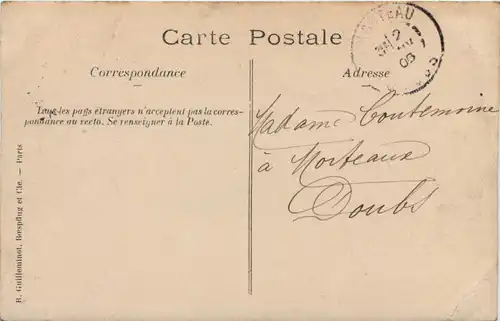 Carte Postale
Correspondance
Tous les pays étrangers n'acceptent pas la corres-
pondance au recto. Se renseigner à la Poste.
Adresse
Madame Coutemoine
à Morteaux
Doubs
B. Guilleminot, Bœspflug et Cie. — Paris
MORTEAU
12
06